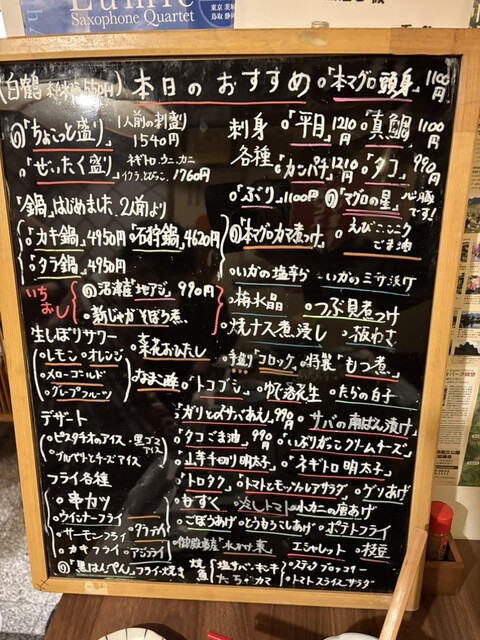 Saxophone Quartet
本日のおすすめ
(白鶴 550円)
。「本マグロ頭身」1100円
「ちょこっと盛り」1人前の刺盛り 1540円
「ぜいたく盛り」ネギトロ、ウニ、カニ
イクラ、とびっこ 1760円
刺身各種
。「平目」1210円 。「真鯛」1100円
。「カンパチ」1210円 。「タコ」990円
。「ぶり」1100円 「マグロの星」心臓です!
「鍋」はじめました、2人前より
「カキ鍋」4950円 。「石狩鍋」4620円
「タラ鍋」4950円
「本マグロカマ煮つけ」
。えびこここク ごま油
いちおし
沼津産“地アジ” 990円
。新じゃがそぼろ煮
。いかの塩辛 。いかの三升漬け
。梅水晶 。つぶ貝煮つけ
。焼ナス煮浸し 。板わさ
生しぼりサワー
。レモン 。オレンジ
。メローゴールド
。グレープフルーツ
。菜花おひたし
。なまこ酢
。手造り「コロッケ」 。特製「もつ煮」
。「トコブシ」 。ゆで落花生 。たらの白子
。「ガリとのサバあえ」990円 。サバの南ばん漬け
。「タコごま油」990円 。「いぶりがっこクリームチーズ」
。「山芋千切り明太子」 。「ネギトロ明太子」
。「トロタク」 。トマトとモッツァレラサラダ 。ゲソあげ
。もずく 。冷しトマト 。小カニの唐あげ
。ごぼうあげ 。とうもろこしあげ 。ポテトフライ
エシャレット 。枝豆
デザート
。ピスタチオのアイス 。黒ゴマアイス
。ブルーベリーチーズアイス
フライ各種
。串カツ
。ウインナーフライ
。サーモンフライ
。カキフライ 。アジフライ
「黒はんぺん」フライ・焼き
焼魚
。塩サバ 。ホッケ
。カマ
。スティックブロッコリー
。トマトスライスサラダ